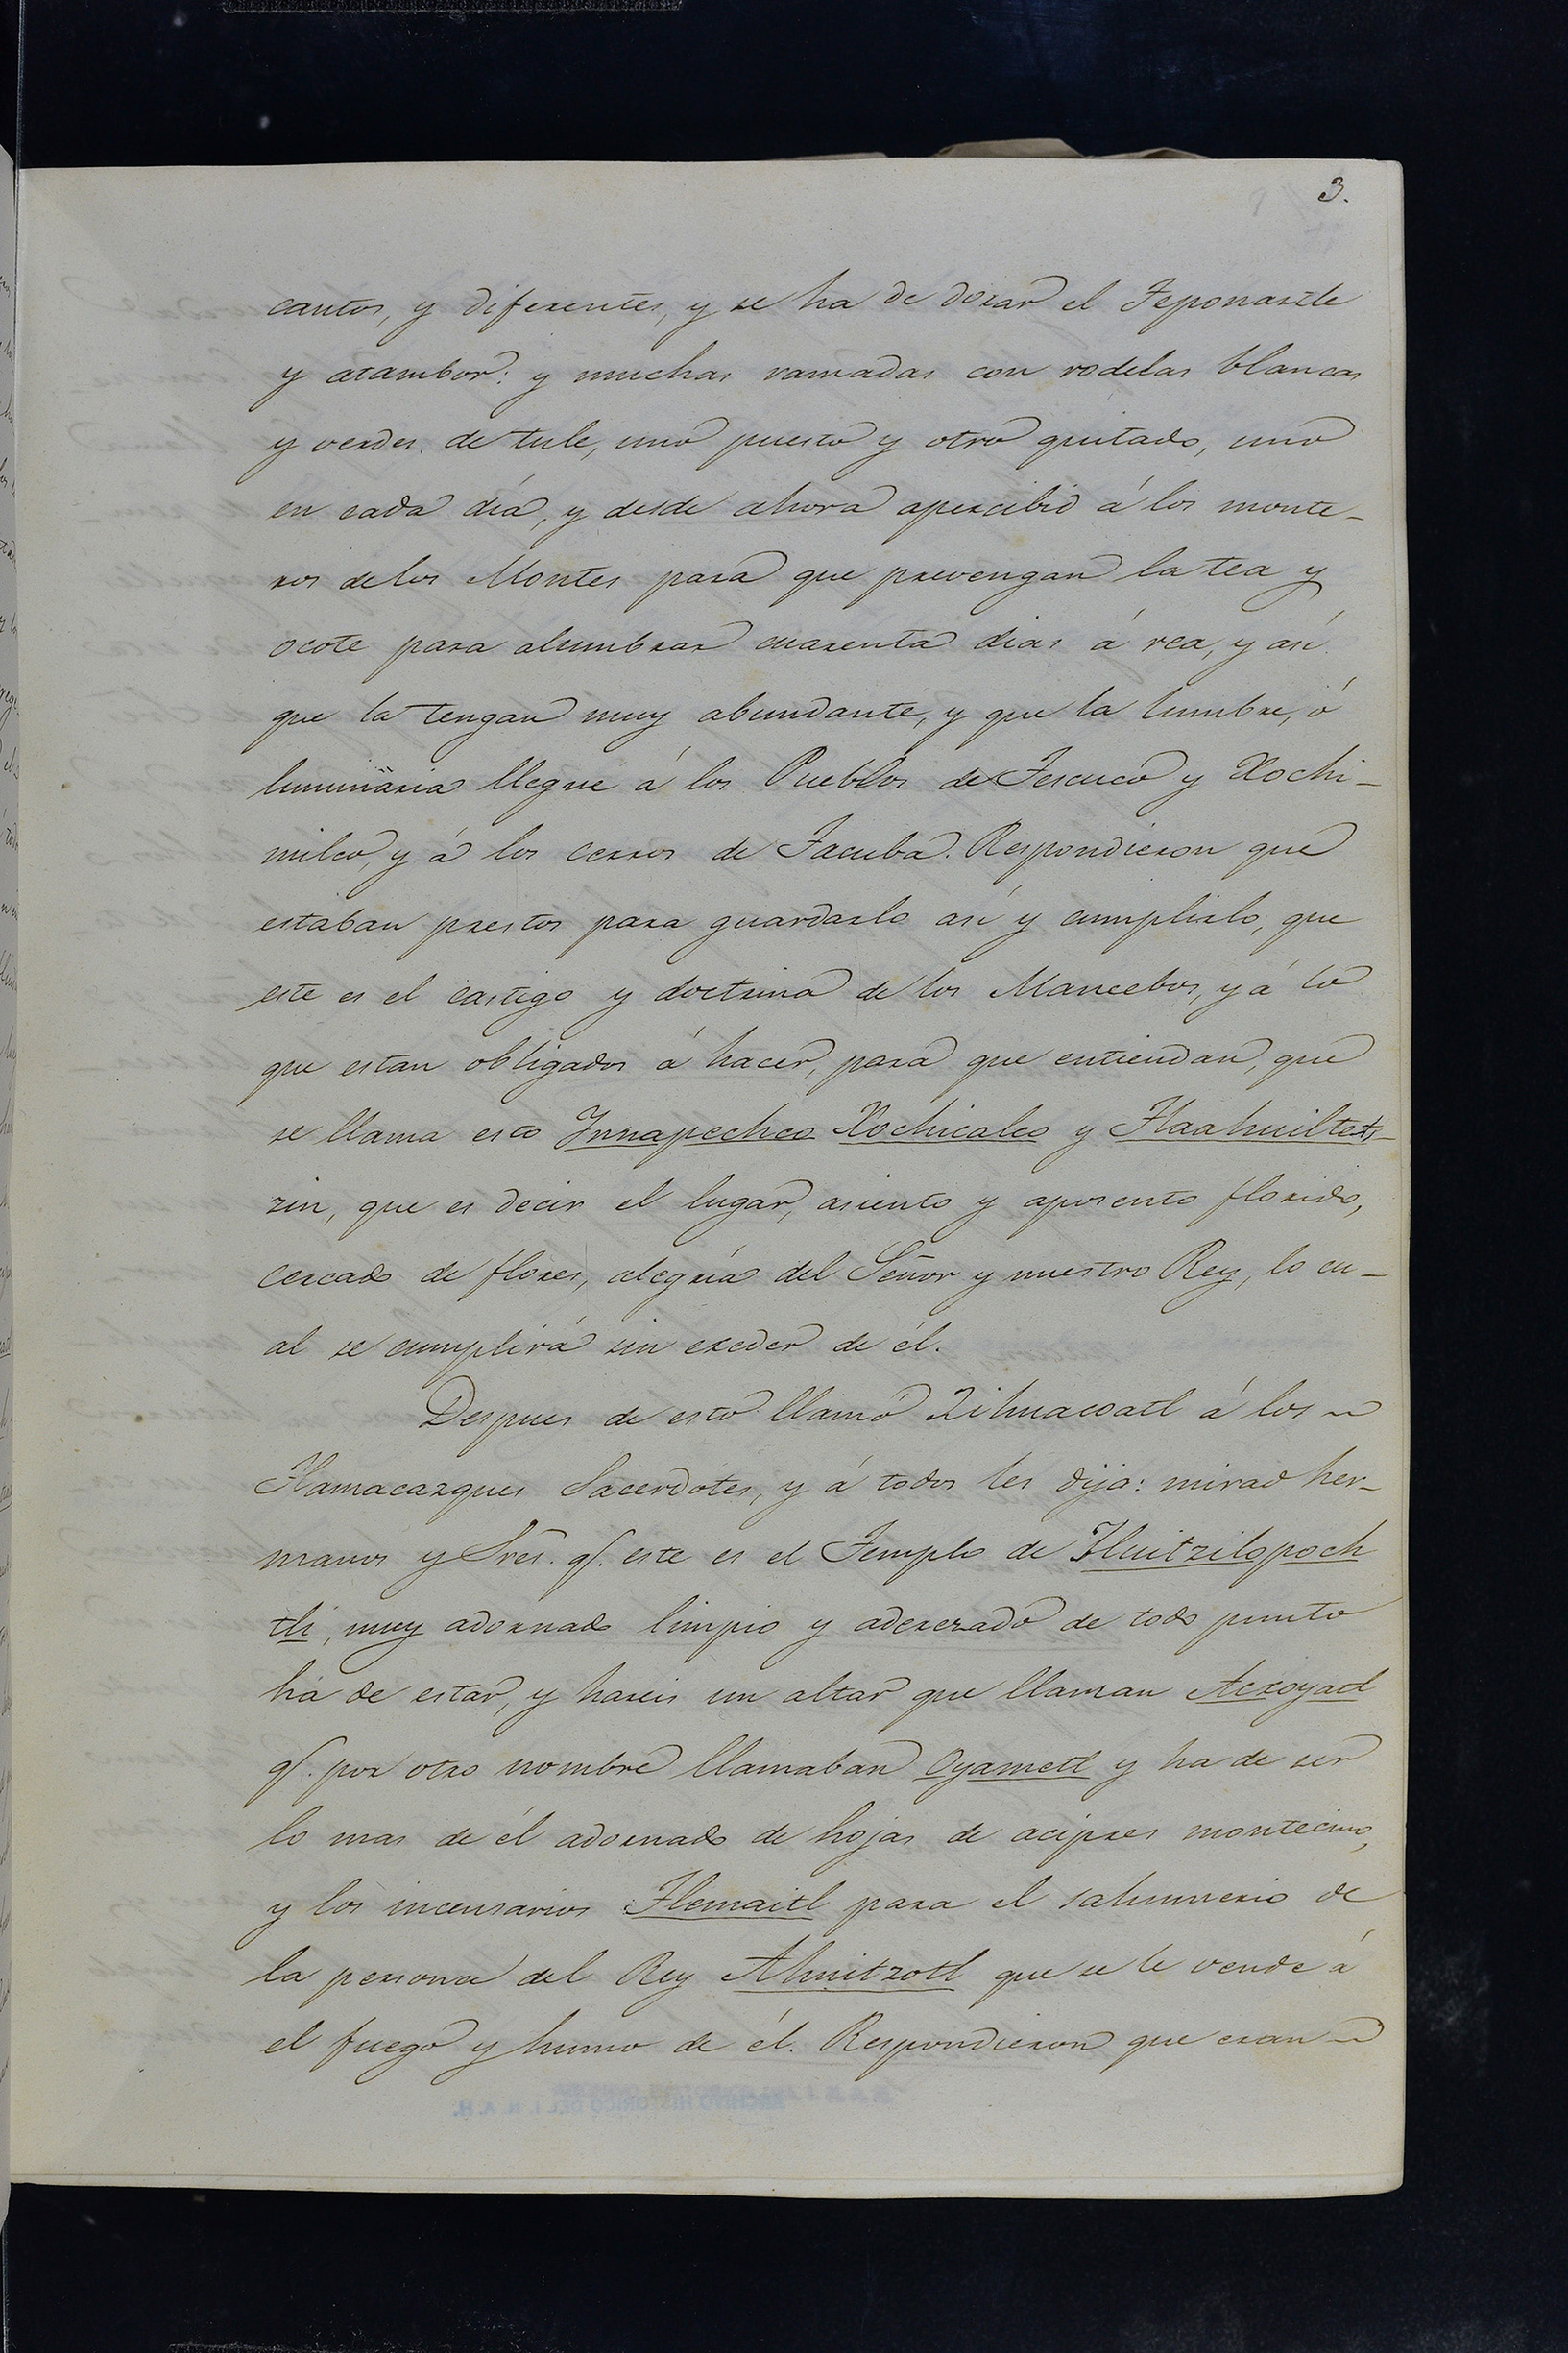 3.
cantos, y diferentes, y se ha de dorar el Teponaztle
y atambor: y muchas ramadas con rodelas blancas
y verdes de tule, uno puesto y otro quitado, uno
en cada día, y desde ahora apercibid á los monte-
ros de los Montes para que prevengan la tea y
ocote para alumbrar cuarenta dias á rea, y así
que la tengan muy abundante, y que la lumbre, ó
luminaria llegue á los Pueblos de Tescuco y Xochi-
milco, y á los cerros de Tacuba. Respondieron que
estaban prestos para guardarlo así y cumplirlo, que
este es el castigo y doctrina de los Mancebos, y á lo
que estan obligados á hacer, para que entiendan, que
se llama esto Xochicalco y
zin, que es decir el lugar, asiento y aposento florido,
cercado de flores, alegría del Señor y nuestro Rey, lo cu-
al se cumplirá sin exeder de él.
Despues de esto llamó Zihuacoatl á los
Tlamacazques Sacerdotes, y á todos les dijo: mirad her-
manos y Sres. q. este es el Templo de Huitzilopoch
tli, muy adornado limpio y aderezado de todo punto
ha de estar, y hareis un altar que llaman Acxoyatl
q. por otro nombre llamaban Oyametl y ha de ser
lo mas de él adornado de hojas de acipres montecino,
y los incensarios Tlemaitl para el sahumerio de
la persona del Rey Ahuitzotl que se le vende á
el fuego y humo de él. Respondieron que eran